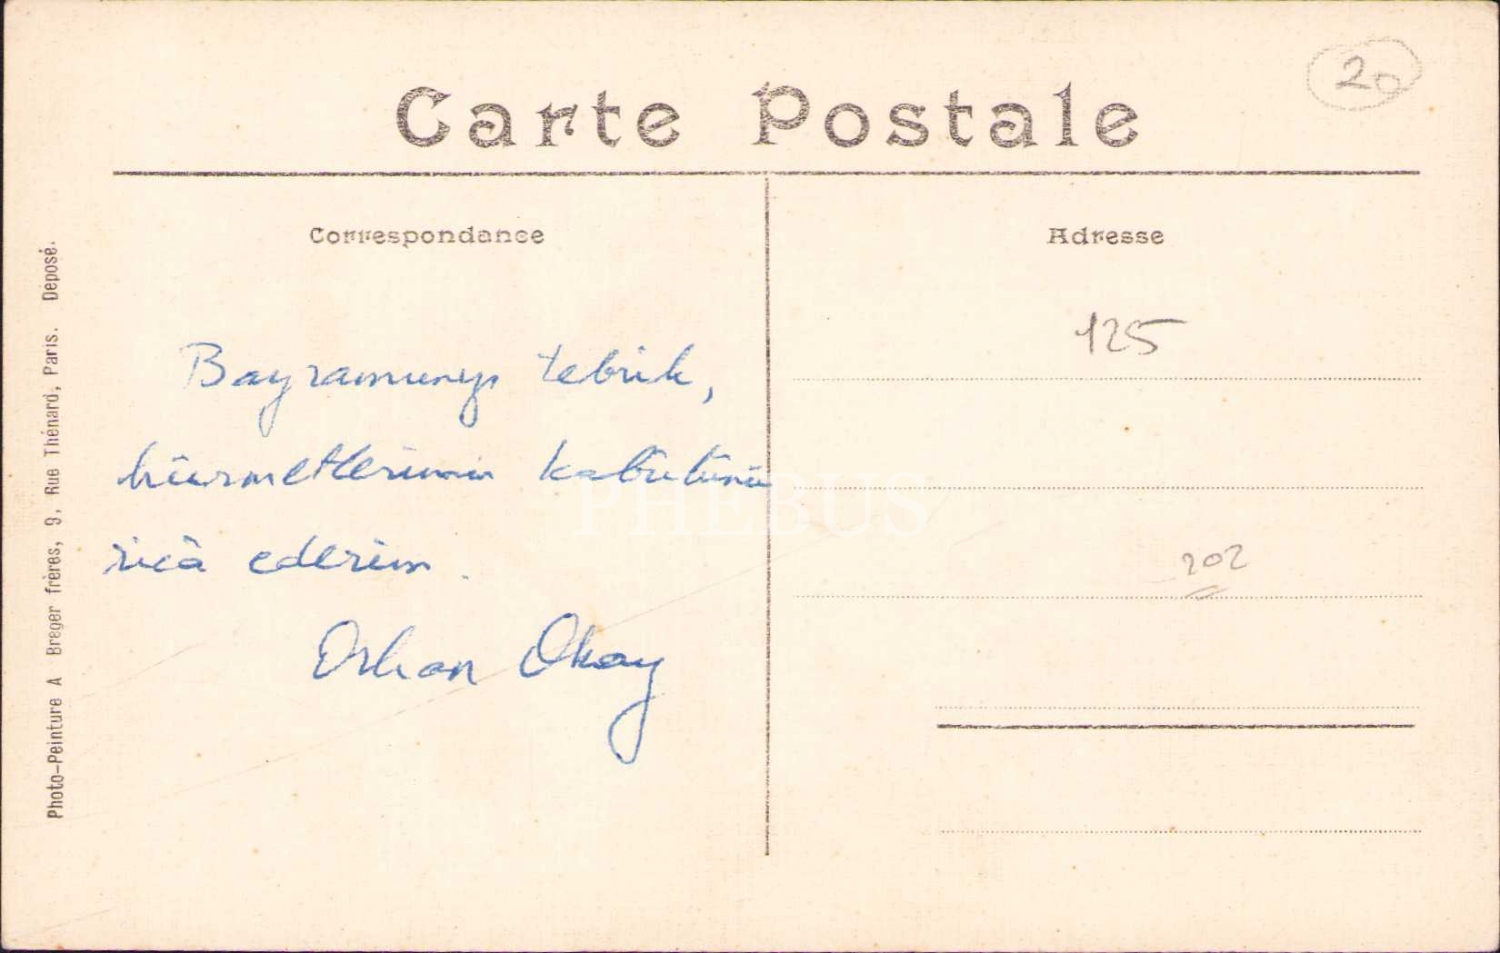 Carte Postale
20
Correspondance
Adresse
Bayramınızı tebrik,
hürmetlerimin kabûlünü
ricâ ederim.
Orhan Okay
125
202
Photo-Peinture A Breger frères, 9, Rue Thénard, Paris. Déposé.
PHEBUS